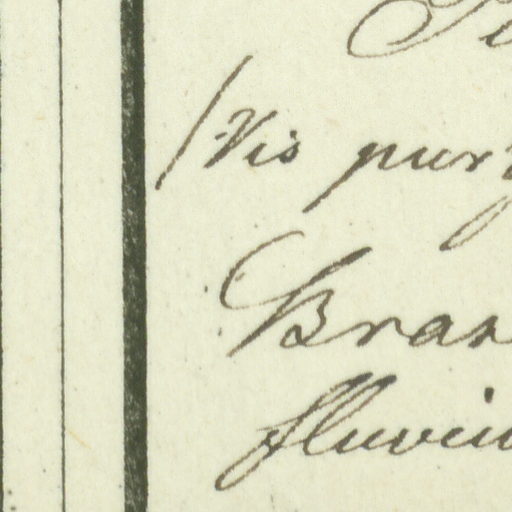 /Vis purg
Bras
fluviu